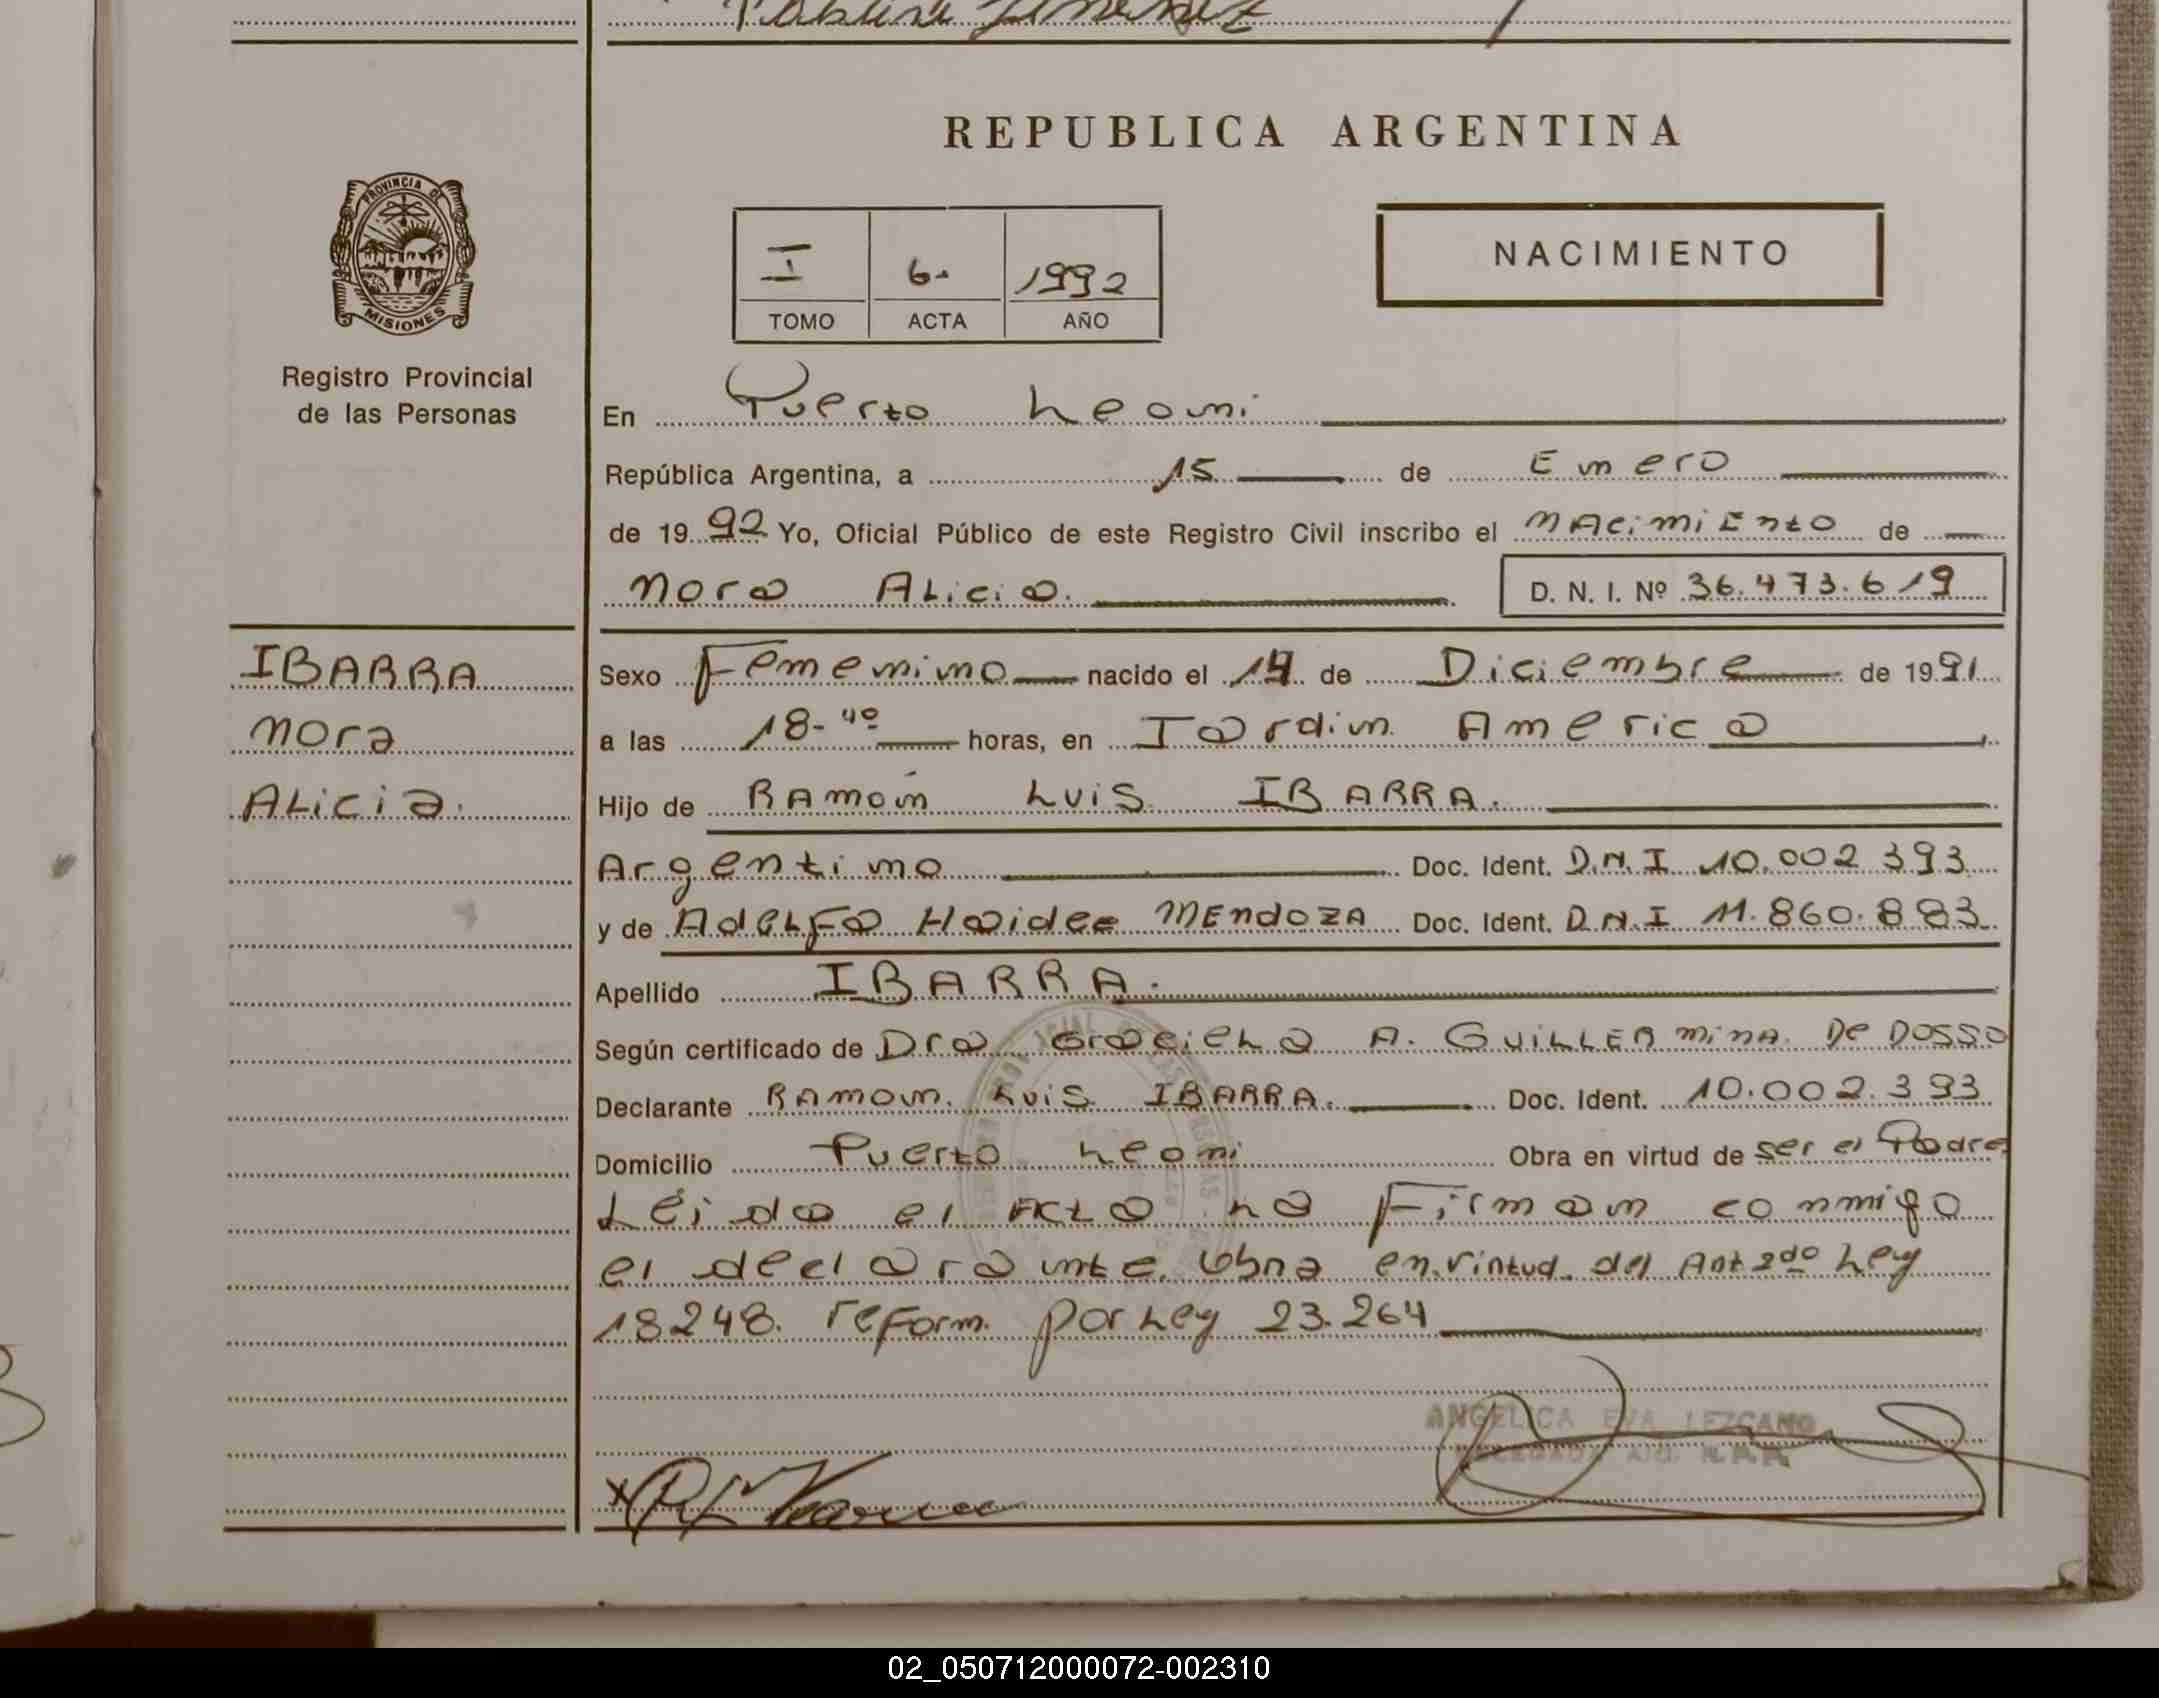 Jimenez
REPUBLICA ARGENTINA
PROVINCIA DE
MISIONES
Registro Provincial
de las Personas
I 6. 1992
TOMO ACTA AÑO
NACIMIENTO
En Puerto Leoni
República Argentina, a 15 de Enero
de 19 92 Yo, Oficial Público de este Registro Civil inscribo el nacimiento de
Nora Alicia. D. N. I. Nº 36.473.619
IBARRA
Nora
Alicia.
Sexo Femenino nacido el 14 de Diciembre de 1991
a las 18-40 horas, en Jardin America
Hijo de Ramón Luis IBARRA.
Argentino Doc. Ident. D.N.I 10.002.393
y de Adelfa Haidee MENDOZA Doc. Ident. D.N.I 11.860.883
Apellido IBARRA.
Según certificado de Dra Graciela A. Guillermina De Dosso
Declarante Ramon Luis IBARRA. Doc. Ident. 10.002.393
Domicilio Puerto Leoni Obra en virtud de ser el Padre
Leida el Acta la Firman conmigo
el declarante. Obra en virtud del Art 2do Ley
18248. reform. por Ley 23.264
ANGELICA EVA LEZCANO
02_050712000072-002310